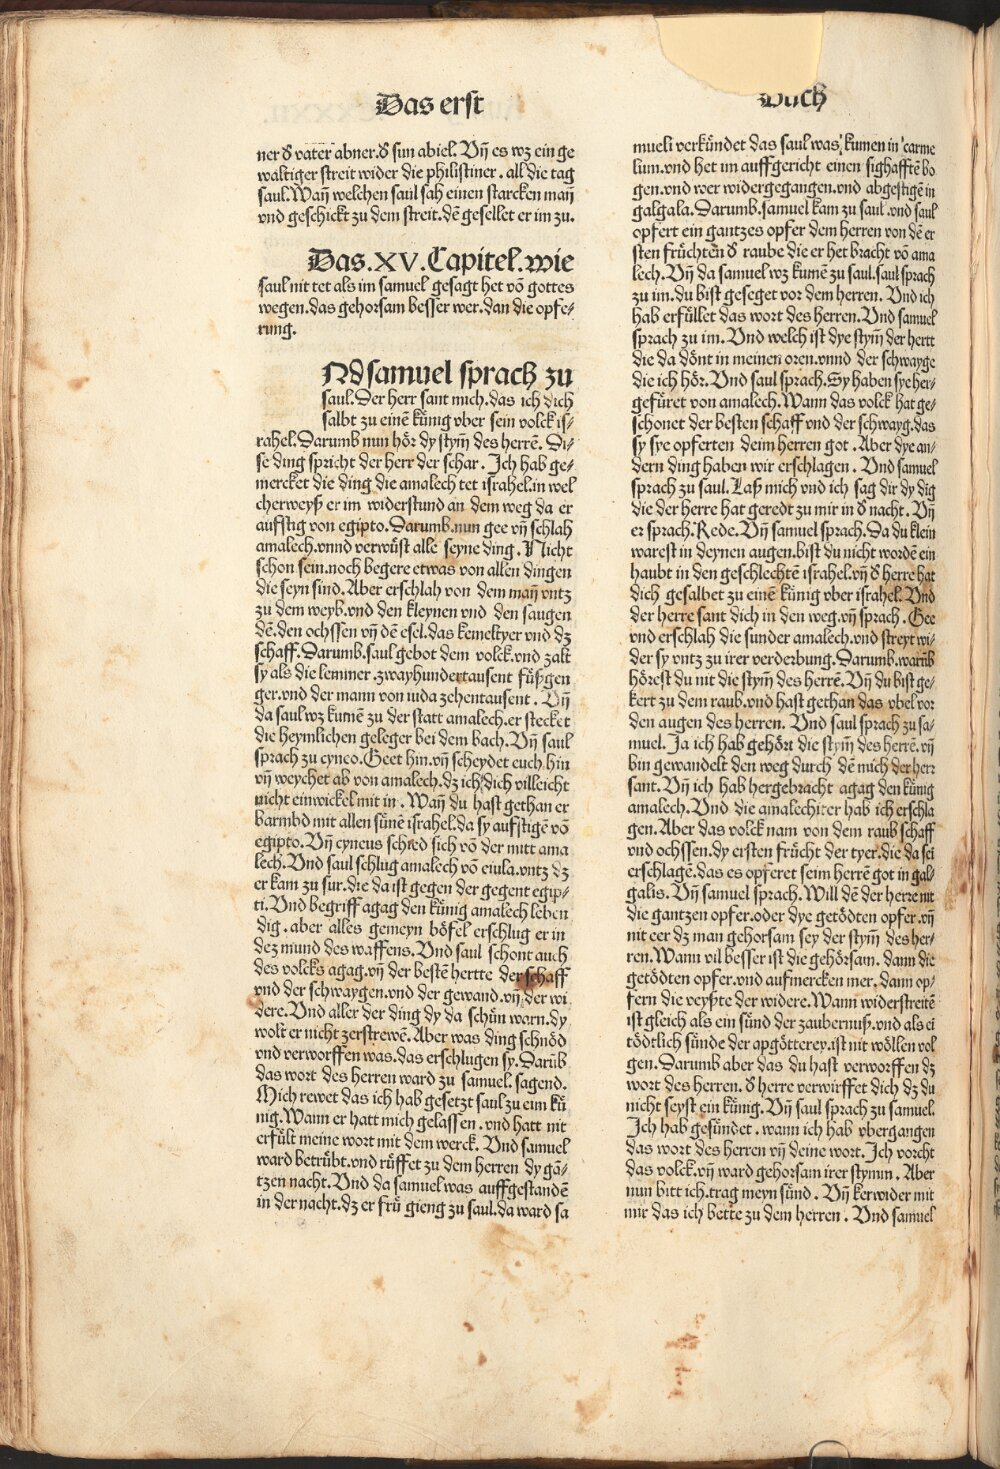 Das erst
ner ð vater abner.ð sun abiel. Vñ es wz ein ge
waltiger streit wider die philistiner . all die tag
saul. Wañ welchen saul sah einen starcken mañ
vnd geschickt zu dem streit.dē gesellet er im zu.
Das .XV. Capitel.wie
saul nit tet als im samuel gesagt het vō gottes
wegen.das gehorsam besser wer.dan die opfe⸗
rung.
NDsamuel sprach zu
saul.Der herr sant mich.das ich dich
salbt zu einē kūnig vber sein volck is⸗
rahel.Darumb nun hör dy stym̄ des herrē. Di⸗
se ding spricht der herr der schar . Ich hab ge⸗
mercket die ding die amalech tet israhel.in wel
cherweyß er im widerstund an dem weg da er
aufstig von egipto.Darumb.nun gee vñ schlah
amalech.vnnd verwüst alle seyne ding . Nicht
schon sein.noch begere etwas von allen dingen
die seyn sind. Aber erschlah von dem mañ vntz
zu dem weyb.vnd den kleynen vnd den saugen
dē.den ochssen vñ dē esel.das kemeltyer vnd dz
schaff.Darumb.saul gebot dem volck.vnd zalt
sy als die lemmer .zwayhundertausent füßgen
ger.vnd der mann von iuda zehentausent . Vñ
da saul wz kumē zu der statt amalech.er stecket
die heymlichen geleger bei dem bach. Vñ saul
sprach zu cyneo.Geet hin.vñ scheydet euch hin
vñ weychet ab von amalech.dz ich dich villeicht
nicht einwickel mit in . Wañ du hast gethan er
barmbd mit allen sünē israhel.da sy aufstigē vō
egipto. Vñ cyneus schied sich vō der mitt ama
lech. Vnd saul schlug amalech vō euila.vntz dz
er kam zu sur.die da ist gegen der gegent egip⸗
ti. Vnd begriff agag den künig amalech leben
dig . aber alles gemeyn böfel erschlug er in
dez mund des waffens. Vnd saul schont auch
des volcks agag.vñ der bestē hertte der schaff
vnd der schwaygen.vnd der gewand.vñ der wi
dere. Vnd aller der ding dy da schün warn.dy
wolt er nicht zerstrewē. Aber was ding schnöd
vnd verworffen was.das erschlugen sy.Darūb
das wort des herren ward zu samuel. sagend.
Mich rewet das ich hab gesetzt saul zu eim kü
nig. Wann er hatt mich gelassen . vnd hatt nit
erfült meine wort mit dem werck. Vnd samuel
ward betrübt.vnd rüffet zu dem herren dy gā⸗
tzen nacht. Vnd da samuel was auffgestandē
in der nacht.dz er frü gieng zu saul.da ward sa
Buch
mueli verkündet das saul was kumen in carme
lum.vnd het im auffgericht einen sighafftē bo
gen.vnd wer widergegangen.vnd abgestigē in
galgala. Darumb.samuel kam zu saul .vnd saul
opfert ein gantzes opfer dem herren von dē er
sten früchten ð raube die er het bracht vō ama
lech. Vñ da samuel wz kumē zu saul.saul sprach
zu im.du bist geseget vor dem herren. Vnd ich
hab erfüllet das wort des herren. Vnd samuel
sprach zu im. Vnd welch ist dye stym̄ der hertt
die da dönt in meinen oren.vnnd der schwayge
die ich hör. Vnd saul sprach.Sy haben sye her⸗
gefüret von amalech. Wann das volck hat ge⸗
schonet der besten schaff vnd der schwayg.das
sy sye opferten deim herren got . Aber dye an⸗
dern ding haben wir erschlagen . Vnd samuel
sprach zu saul.Laß mich vnd ich sag dir dy dīg
die der herre hat geredt zu mir in ð nacht. Vñ
er sprach.Rede. Vñ samuel sprach.Da du klein
warest in deynen augen.bist du nicht wordē ein
haubt in den geschlechtē israhel.vñ ð herre hat
dich gesalbet zu einē künig vber israhel. Vnd
der herre sant dich in den weg.vñ sprach . Gee
vnd erschlah die sunder amalech.vnd streyt wi⸗
der sy vntz zu irer verderbung.Darumb.warūb
hörest du nit die stym̄ des herrē. Vñ du bist ge⸗
kert zu dem raub.vnd hast gethan das vbel vor
den augen des herren. Vnd saul sprach zu sa⸗
muel. Ja ich hab gehört die stym̄ des herrē.vñ
bin gewandelt den weg durch dē mich der herr
sant. Vñ ich hab hergebracht agag den künig
amalech. Vnd die amalechiter hab ich erschla
gen. Aber das volck nam von dem raub schaff
vnd ochssen.dy ersten frücht der tyer.die da sei
erschlagē.das es opferet seim herrē got in gal⸗
galis. Vñ samuel sprach. Will dē der herre nit
die gantzen opfer.oder dye getödten opfer.vñ
nit eer dz man gehorsam sey der stym̄ des her⸗
ren. Wann vil besser ist die gehörsam. dann die
getödten opfer.vnd aufmercken mer. dann op⸗
fern die veyßte der widere. Wann widerstreitē
ist gleich als ein sünd der zaubernuß.vnd als ei
tödtlich sünde der apgötterey.ist nit wöllen vol
gen. Darumb aber das du hast verworffen dz
wort des herren. ð herre verwirffet dich dz du
nicht seyst ein künig. Vñ saul sprach zu samuel.
Ich hab gesündet . wann ich hab vbergangen
das wort des herren vñ deine wort. Ich vorcht
das volck.vñ ward gehorsam irer stymm . Aber
nun bitt ich.trag meyn sünd . Vñ ker wider mit
mir das ich bette zu dem herren . Vnd samuel